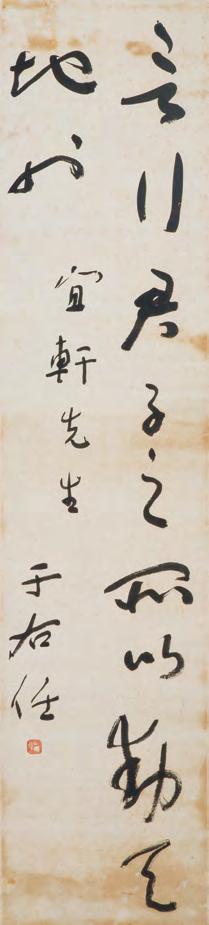 言行君子之所以動天
地也
宜軒先生
于右任